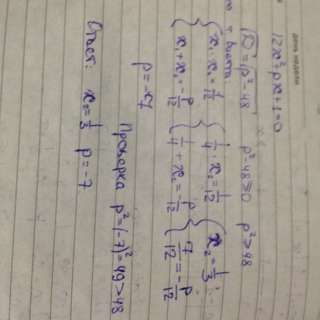 12x²+px+1=0
D=p²-48 p²-48>0 p²>48
т Виета:
{x₁·x₂=1/12 {1/4·x₂=1/12 {x₂=1/3
{x₁+x₂=-p/12 {1/4+x₂=-p/12 {7/12=-p/12
p=-7
Проверка p²=(-7)²=49>48
Ответ: x₂=1/3 p=-7